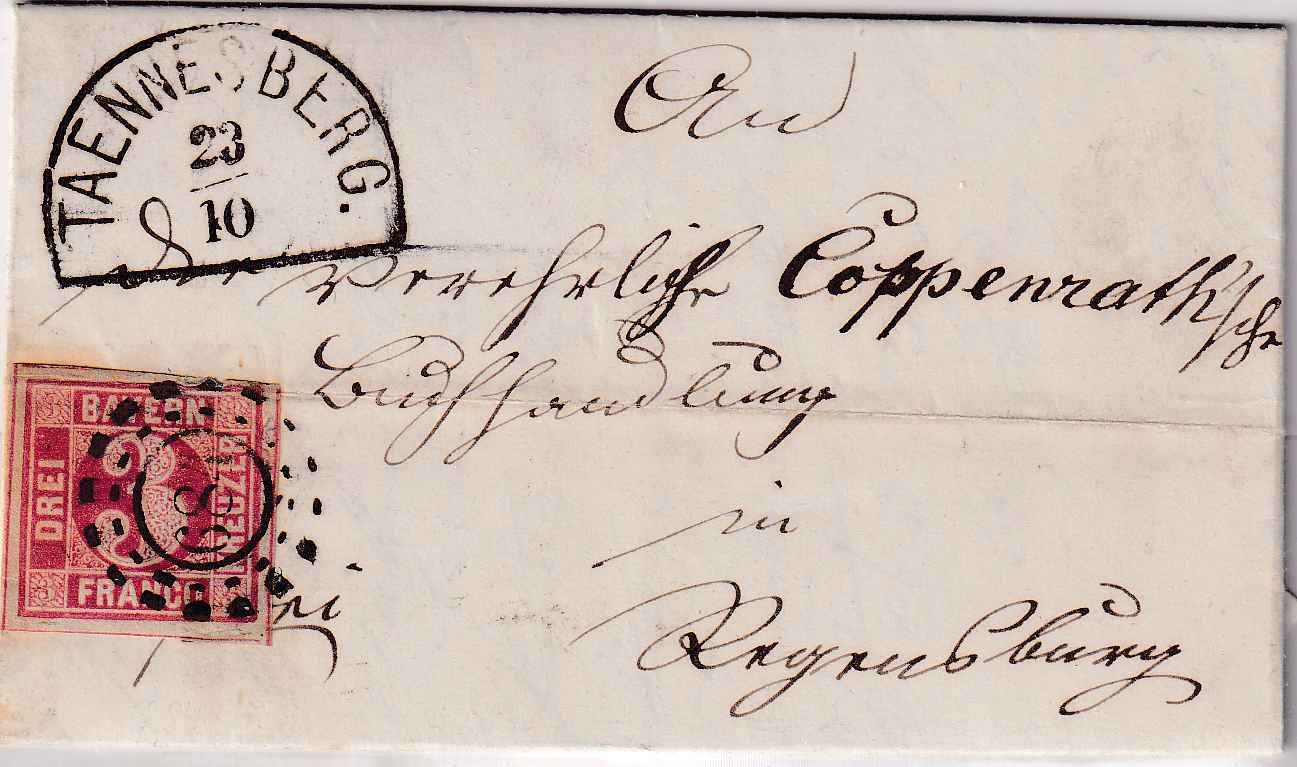 TAENNESBERG.
23
10
An
die verehrliche Coppenrath'sche
Buchhandlung
in
Regensburg
BAYERN
DREI
KREUZER
3
FRANCO
frei